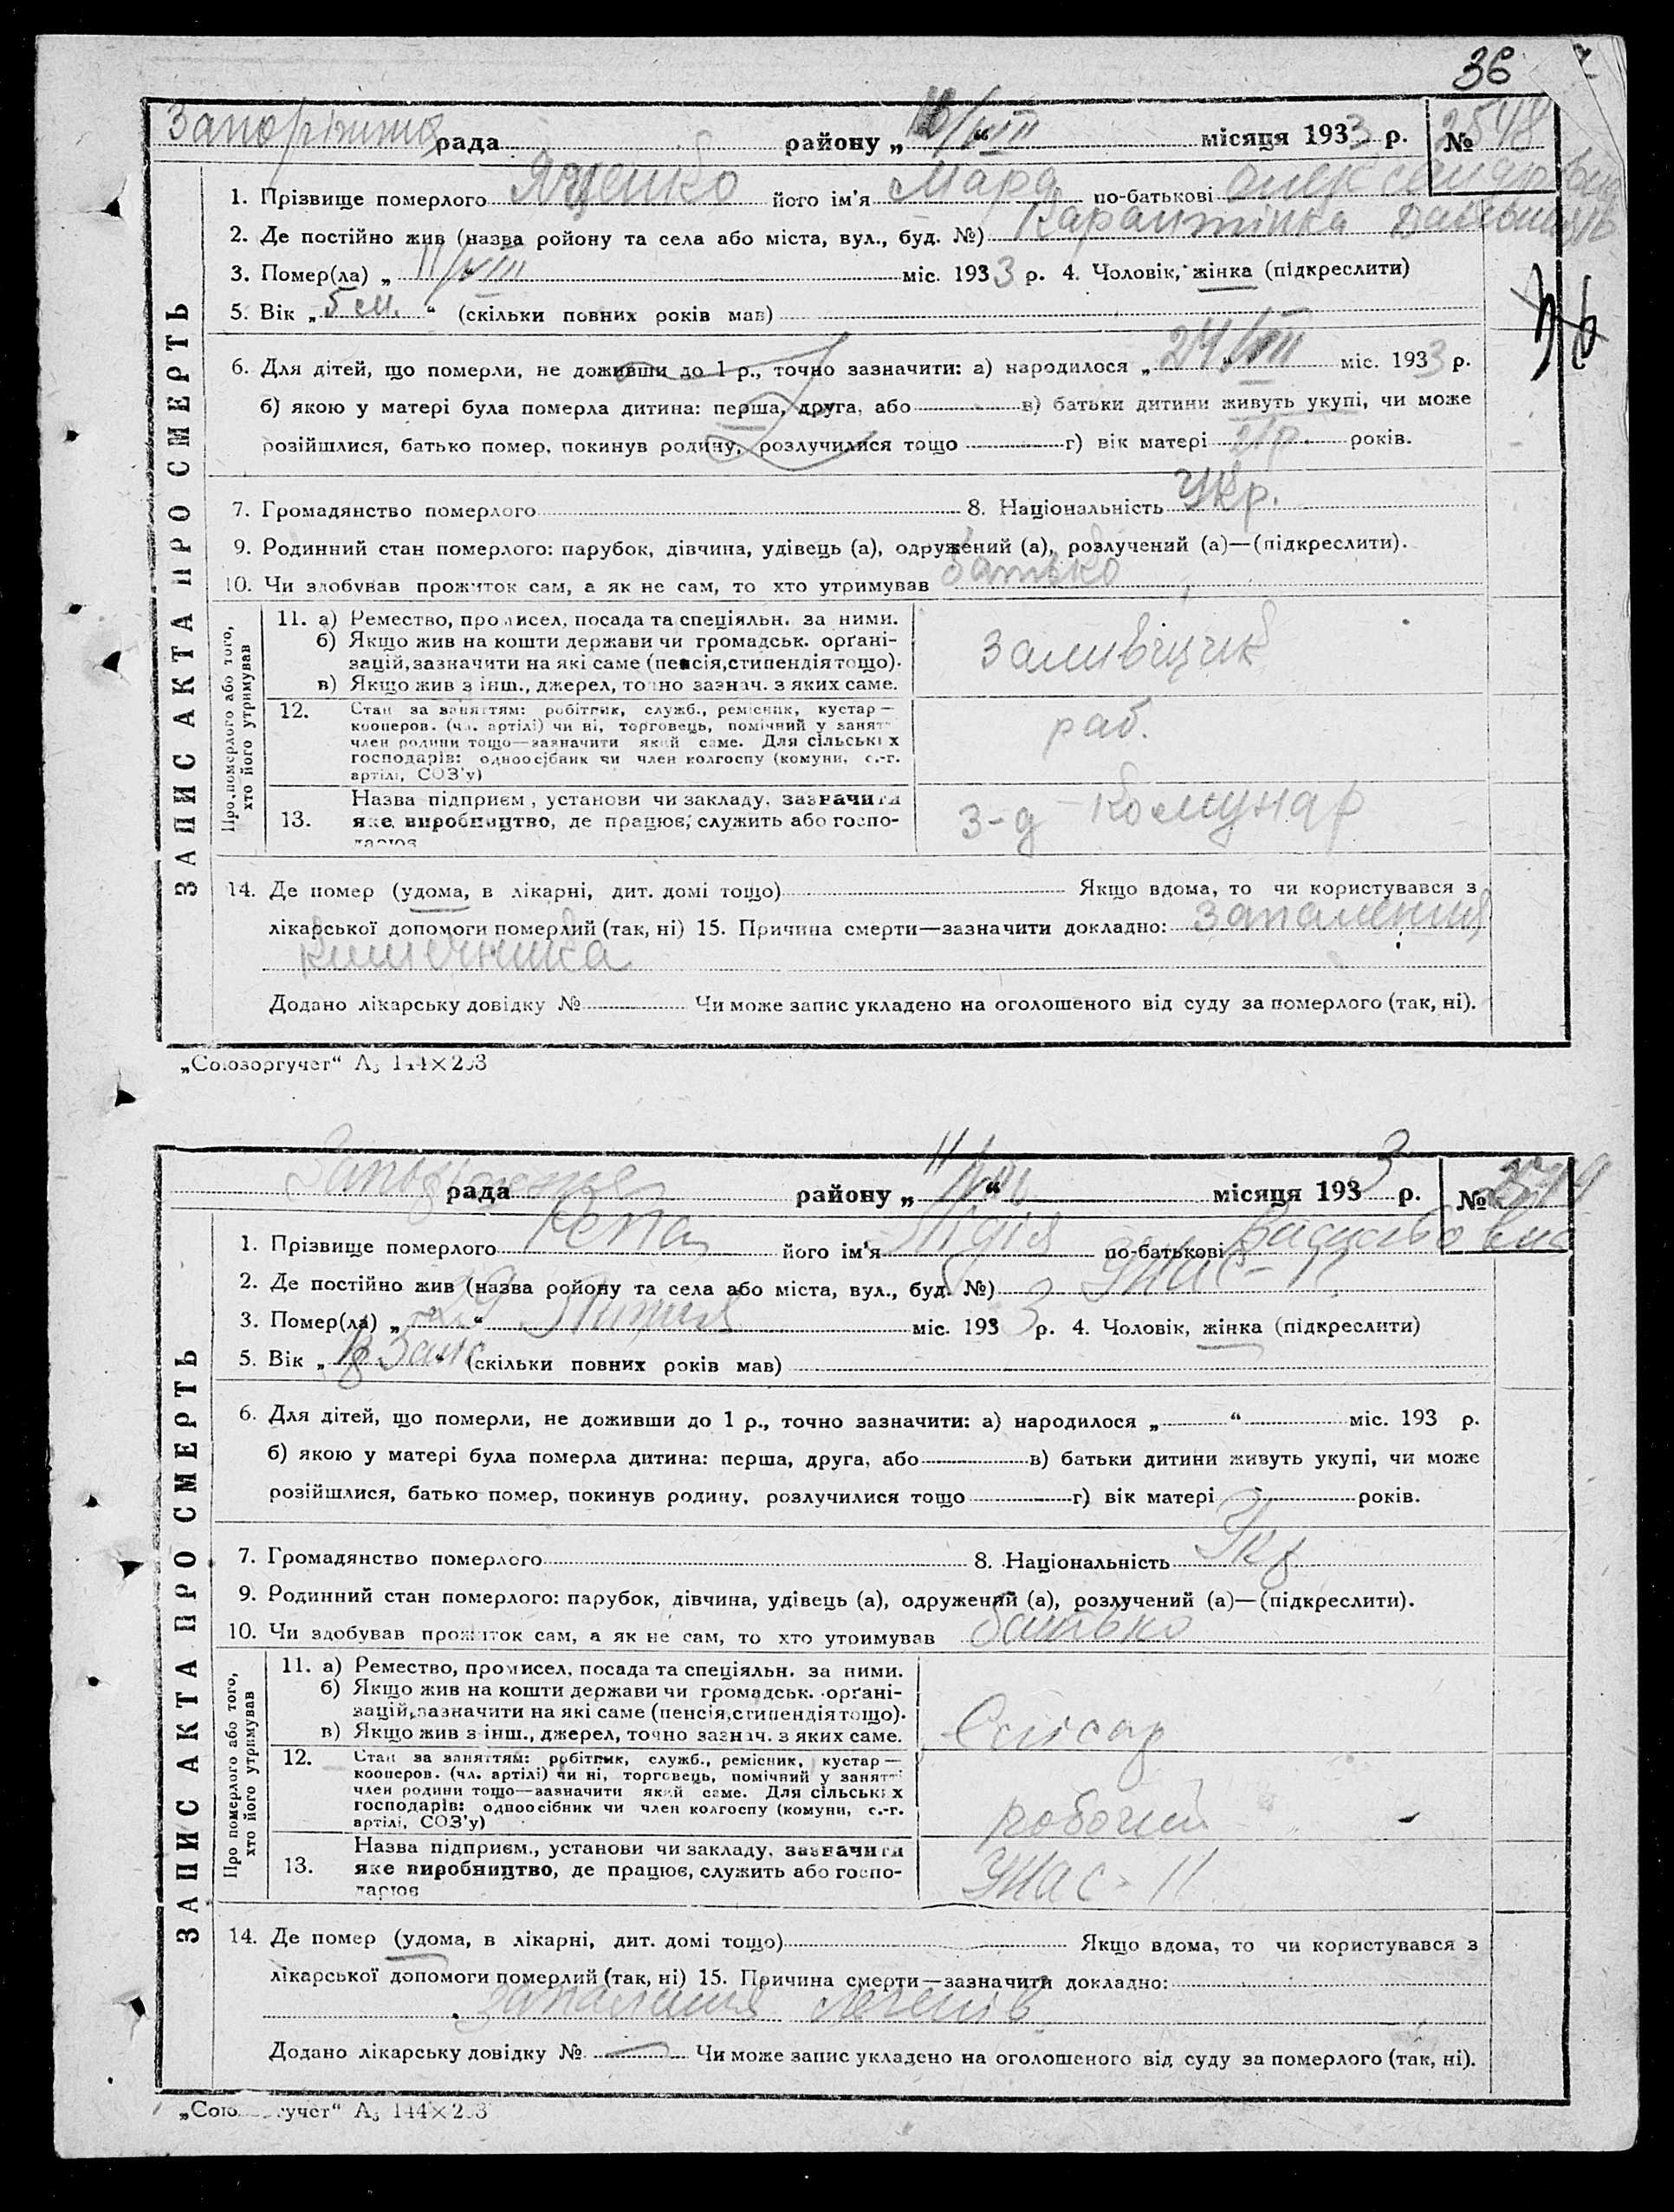 36
Запоріжжя рада району „ 11/VIII “ місяця 1933 р. № 2548
1. Прізвище померлого Яценко його ім'я Мара по-батькові Олександрівна
2. Де постійно жив (назва ройону та села або міста, вул., буд. №) Карантінка
3. Помер(ла) „ 11/VIII міс. 1933 р. 4. Чоловік, жінка (підкреслити)
5. Вік „ 5 м. “ (скільки повних років мав)
36
6. Для дітей, що померли, не доживши до 1 р., точно зазначити: а) народилося „ 24/VIII міс. 1933 р.
б) якою у матері була померла дитина: перша, друга, або в) батьки дитини живуть укупі, чи може
розійшлися, батько помер, покинув родину, розлучилися тощо г) вік матері 21 р. років.
7. Громадянство померлого 8. Національність Укр.
9. Родинний стан померлого: парубок, дівчина, удівець (а), одружений (а), розлучений (а)—(підкреслити).
10. Чи здобував прожиток сам, а як не сам, то хто утримував батько
ЗАПИС АКТА ПРО СМЕРТЬ
Про померлого або того, хто його утримував
11. а) Ремество, промисел, посада та спеціяльн. за ними.
б) Якщо жив на кошти держави чи громадськ. орґані-
зацій, зазначити на які саме (пенсія, стипендія тощо).
в) Якщо жив з інш., джерел, точно зазнач. з яких саме.
Заливщик
12. Стан за заняттям: робітник, служб., ремісник, кустар—
кооперов. (чл. артілі) чи ні, торговець, помічний у занятт
член родини тощо—зазначити який саме. Для сільських
господарів: одноосібник чи член колгоспу (комуни, с.-г.
артілі, СОЗ'у)
раб.
Назва підприєм, установи чи закладу, зазначити
13. яке виробництво, де працює, служить або госпо-
дарює
З-д Комунар
14. Де помер (удома, в лікарні, дит. домі тощо) Якщо вдома, то чи користувався з
лікарської допомоги померлий (так, ні) 15. Причина смерти—зазначити докладно: Запалення
кишечника
Додано лікарську довідку № Чи може запис укладено на оголошеного від суду за померлого (так, ні).
„Союзоргучет“ А5 144×203
Запоріжжя рада району „ 11/VIII “ місяця 1933 р. № 2549
1. Прізвище померлого Репа його ім'я Лідія по-батькові
2. Де постійно жив (назва ройону та села або міста, вул., буд. №)
3. Помер(ла) „ 29 “ Липня міс. 1933 р. 4. Чоловік, жінка (підкреслити)
5. Вік „ “ (скільки повних років мав)
6. Для дітей, що померли, не доживши до 1 р., точно зазначити: а) народилося „ “ міс. 193 р.
б) якою у матері була померла дитина: перша, друга, або в) батьки дитини живуть укупі, чи може
розійшлися, батько помер, покинув родину, розлучилися тощо г) вік матері років.
7. Громадянство померлого 8. Національність Укр
9. Родинний стан померлого: парубок, дівчина, удівець (а), одружений (а), розлучений (а)—(підкреслити).
10. Чи здобував прожиток сам, а як не сам, то хто утримував батько
ЗАПИС АКТА ПРО СМЕРТЬ
Про померлого або того, хто його утримував
11. а) Ремество, промисел, посада та спеціяльн. за ними.
б) Якщо жив на кошти держави чи громадськ. орґані-
зацій, зазначити на які саме (пенсія, стипендія тощо).
в) Якщо жив з інш., джерел, точно зазнач. з яких саме.
Слюсар
12. Стан за заняттям: робітник, служб., ремісник, кустар—
кооперов. (чл. артілі) чи ні, торговець, помічний у занятті
член родини тощо—зазначити який саме. Для сільських
господарів: одноосібник чи член колгоспу (комуни, с.-г.
артілі, СОЗ'у)
робочий
Назва підприєм., установи чи закладу, зазначити
13. яке виробництво, де працює, служить або госпо-
дарює
14. Де помер (удома, в лікарні, дит. домі тощо) Якщо вдома, то чи користувався з
лікарської допомоги померлий (так, ні) 15. Причина смерти—зазначити докладно:
запалення легенів
Додано лікарську довідку № — Чи може запис укладено на оголошеного від суду за померлого (так, ні).
„Союзоргучет“ А5 144×203